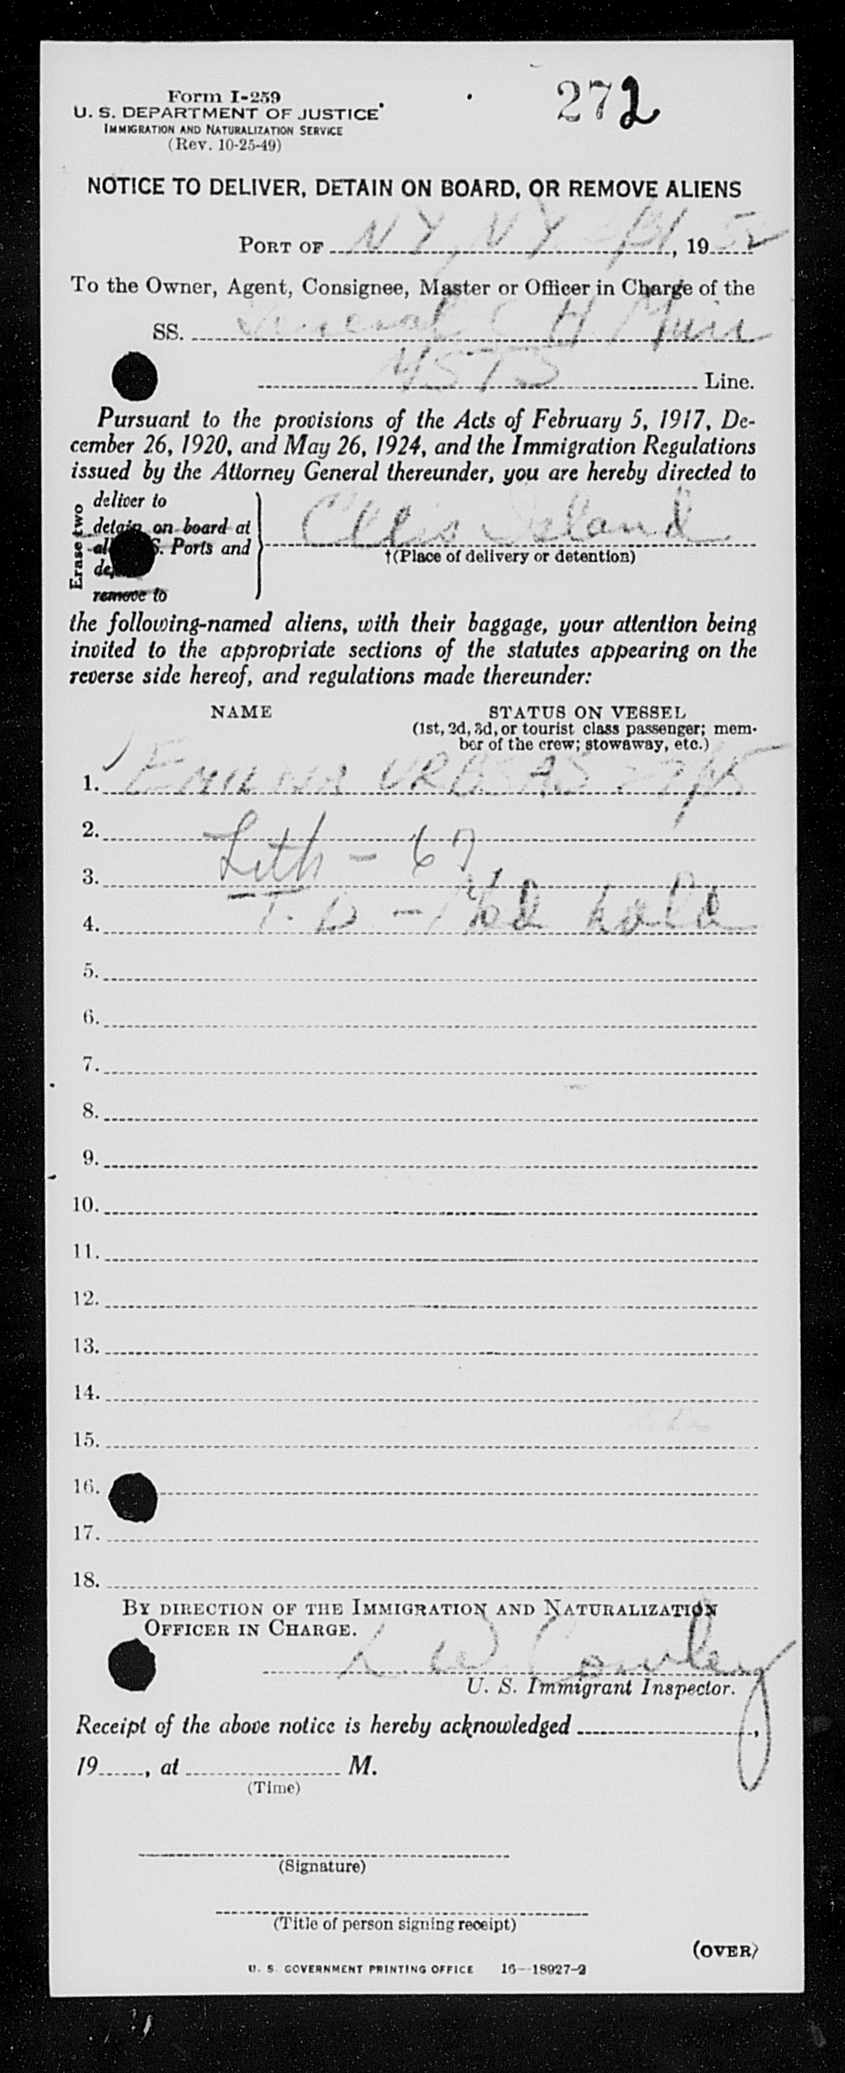 Form I-259
272
U. S. DEPARTMENT OF JUSTICE
IMMIGRATION AND NATURALIZATION SERVICE
(Rev. 10-25-49)
NOTICE TO DELIVER, DETAIN ON BOARD, OR REMOVE ALIENS
PORT OF NY, NY , 19 52
To the Owner, Agent, Consignee, Master or Officer in Charge of the
SS. General C H Muir
MSTS Line.
Pursuant to the provisions of the Acts of February 5, 1917, De-
cember 26, 1920, and May 26, 1924, and the Immigration Regulations
issued by the Attorney General thereunder, you are hereby directed to
Erase two
deliver to
detain on board at
Ports and
remove to
Ellis Island
†(Place of delivery or detention)
the following-named aliens, with their baggage, your attention being
invited to the appropriate sections of the statutes appearing on the
reverse side hereof, and regulations made thereunder:
NAME STATUS ON VESSEL
(1st, 2d, 3d, or tourist class passenger; mem-
ber of the crew; stowaway, etc.)
1. URBSAS
2. Lith - 67
3.
4. T. D - hold
5.
6.
7.
8.
9.
10.
11.
12.
13.
14.
15.
16.
17.
18.
BY DIRECTION OF THE IMMIGRATION AND NATURALIZATION
OFFICER IN CHARGE.
L. W. Cowley
U. S. Immigrant Inspector.
Receipt of the above notice is hereby acknowledged ,
19 , at M.
(Time)
(Signature)
(Title of person signing receipt)
(OVER)
U. S. GOVERNMENT PRINTING OFFICE 16—18927-2